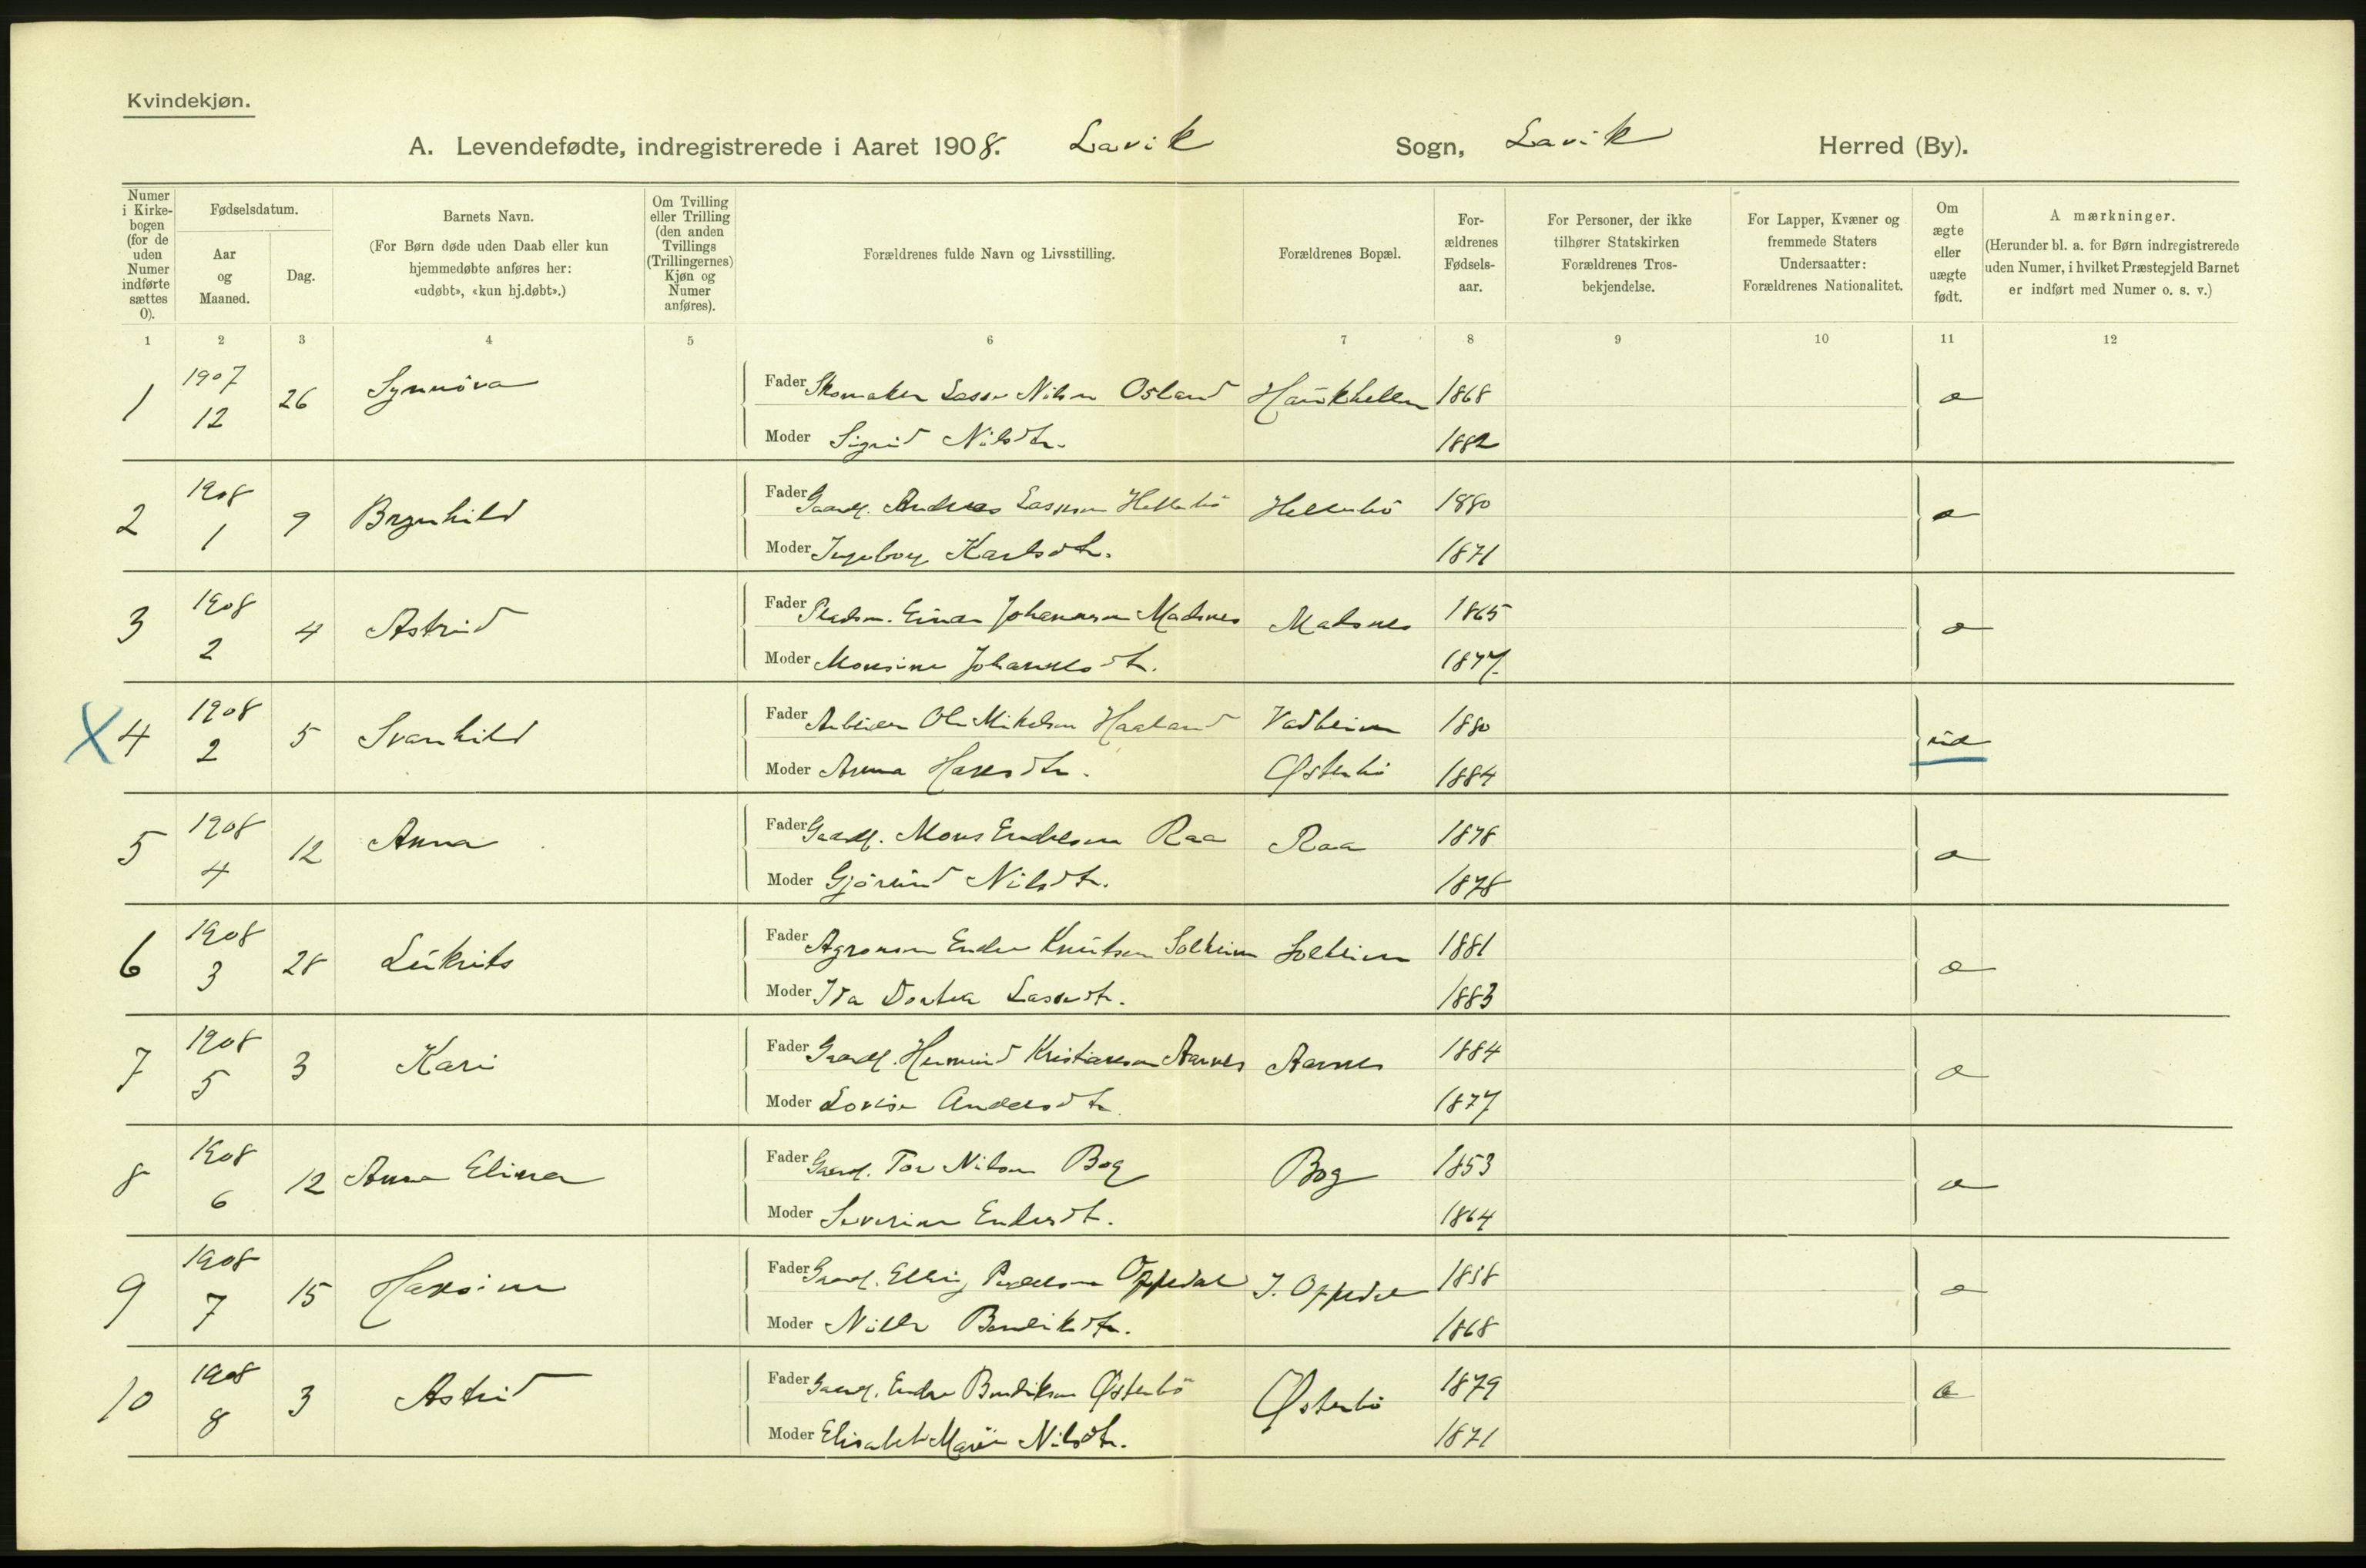 Kvindekjøn.
A. Levendefødte, indregistrerede i Aaret 1908. Lavik Sogn, Lavik Herred (By).
Numer i Kirkebogen (for de uden Numer indførte sættes 0).
Fødselsdatum.
Aar og Maaned.
Dag.
Barnets Navn.
(For Børn døde uden Daab eller kun hjemmedøbte anføres her: «udøbt», «kun hj.døbt».)
Om Tvilling eller Trilling (den anden Tvillings (Trillingernes) Kjøn og Numer anføres).
Forældrenes fulde Navn og Livsstilling.
Forældrenes Bopæl.
Forældrenes Fødselsaar.
For Personer, der ikke tilhører Statskirken Forældrenes Trosbekjendelse.
For Lapper, Kvæner og fremmede Staters Undersaatter: Forældrenes Nationalitet.
Om ægte eller uægte født.
A mærkninger.
(Herunder bl. a. for Børn indregistrerede uden Numer, i hvilket Præstegjeld Barnet er indført med Numer o. s. v.)
1 2 3 4 5 6 7 8 9 10 11 12
1 1907 12 26 Synnöva Fader Skomaker Lasse Nilsen Osland Haukhellen 1868
Moder Sigrid Nilsdtr. 1882
2 1908 1 9 Brynhild Fader Gaardl. Andreas Lassesen Hellebö Hellebö 1880
Moder Ingeborg Karlsdtr. 1871
3 1908 2 4 Astrid Fader Pladsm. Einar Johannesen Madsnes Madsnes 1865
Moder Monsine Johannesdtr. 1877
X 4 1908 2 5 Svanhild Fader Arbeider Ole Mikelsen Haaland Vadheim 1880
Moder Anna Hansdtr. Østerbö 1884
5 1908 4 12 Anna Fader Gaardl. Mons Endresen Raa Raa 1878
Moder Gjörund Nilsdtr. 1878
6 1908 3 28 Lukrits Fader Agronom Endre Knutsen Solheim Solheim 1881
Moder Ida Dortea Lassedtr. 1883
7 1908 5 3 Kari Fader Gaardl. Hermund Kristiansen Aarnes Aarnes 1884
Moder Lovise Andersdtr. 1877
8 1908 6 12 Anna Elina Fader Gaardl. Tor Nilsen Bog Bog 1853
Moder Severine Endresdtr. 1864
9 1908 7 15 Hansine Fader Gaardl. Elling Pedersen Oppedal I. Oppedal 1858
Moder Nille Bendiksdtr. 1868
10 1908 8 3 Astrid Fader Gaardl. Endre Bendiksen Østerbö Østerbö 1879
Moder Elisabet Marie Nilsdtr. 1871